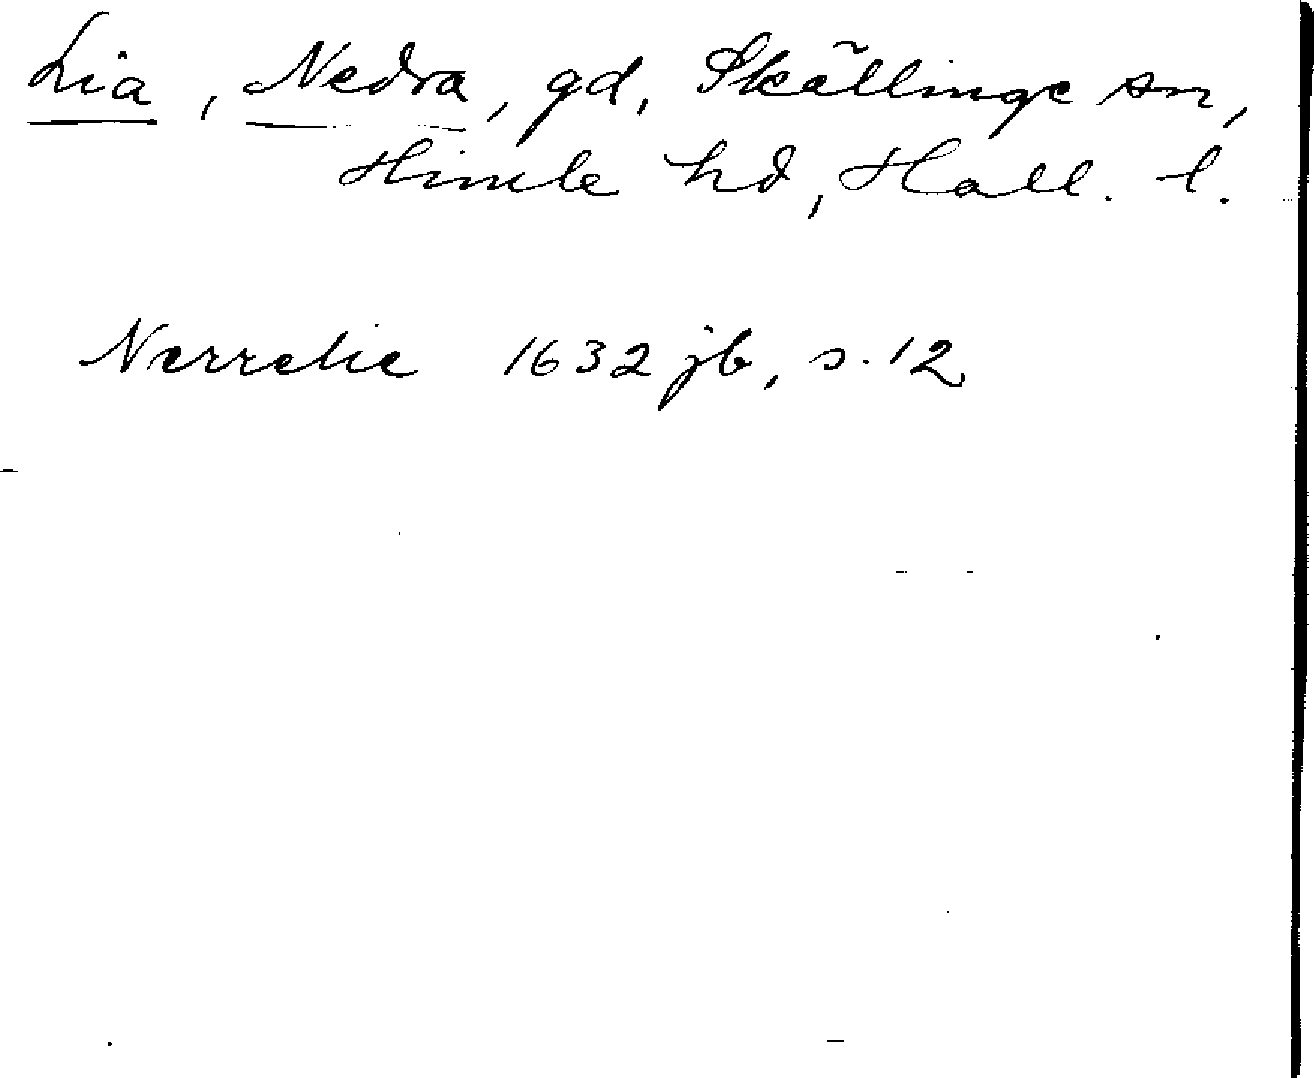 Lia, Nedra, gd, Skällinge sn,
Himle hd, Hall. l.
Nerrelie 1632 jb, s. 12